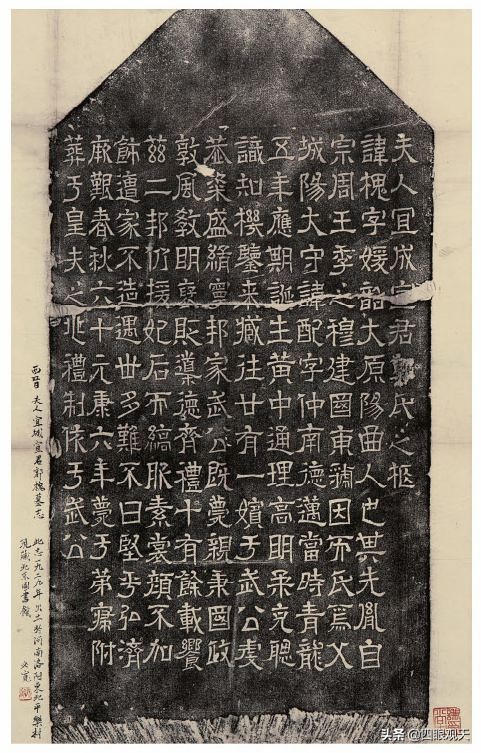 夫人宜成宣君郭氏之柩
諱槐字媛韶大原陽曲人也其先胤自
宗周王季之穆建國東虢因而氏焉父
城陽大守諱配字仲南德邁當時青龍
五年應期誕生黃中通理高明柔克聰
識知機鑒來藏往廿有一嬪于武公虔
恭粢盛緝寧邦家武公既薨親秉國政
敦風教明褒貶導德齊禮十有餘載饗
茲二邦仍援妃后而縞服素裳顏不加
飾遭家不造遇世多難不曰堅乎弘濟
厥艱春秋六十元康六年薨于第寢附
葬于皇夫之兆禮制依于武公
西晉 夫人宜城宣君郭槐墓志
此志一九二九年出土於河南洛阳東北平樂村
現藏北京圖書館
头条 @四眼观天